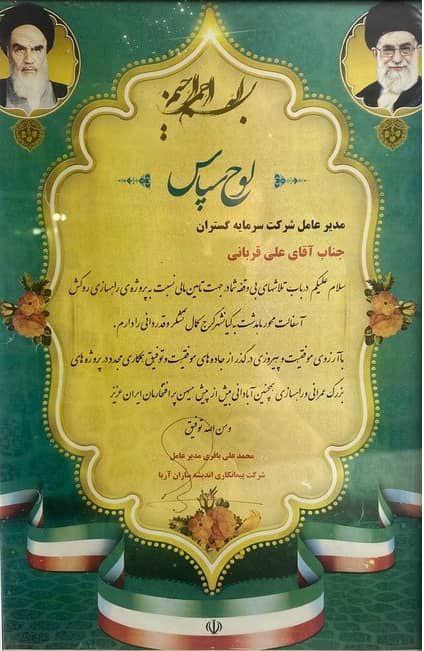 بسم الله الرحمن الرحیم
لوح سپاس
مدیر عامل شرکت سرمایه گستران
جناب آقای علی قربانی
سلام علیکم در باب تلاشهای بی وقفه شما در جهت تامین مالی نسبت به پروژه ی راهسازی روکش
آسفالت محور ماهدشت به کیانشهر کرج کمال تشکر و قدردانی را دارم.
با آرزوی موفقیت و پیروزی در گذر از جاده های موفقیت و توفیق همکاری مجدد در پروژه های
بزرگ عمرانی و راهسازی همچنین آبادانی بیش از پیش میهن پر افتخارمان ایران عزیز
و من الله توفیق
محمد علی باقری مدیر عامل
شرکت پیمانکاری اندیشه سازان آریا